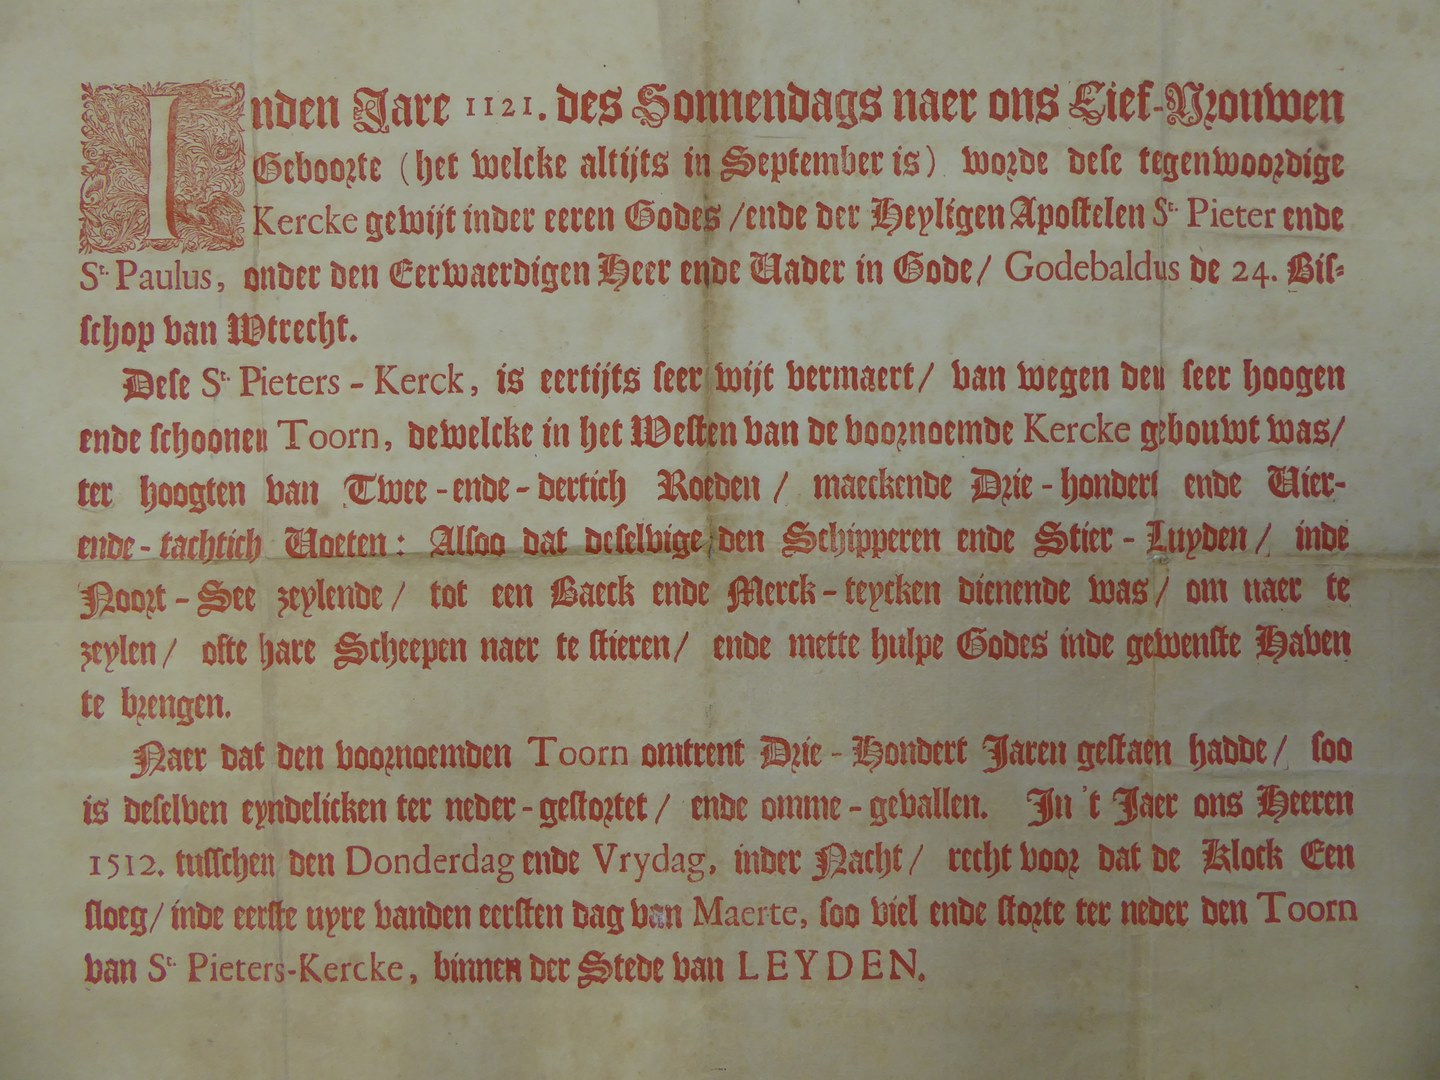 Inden Jare 1121. des Sonnendags naer ons Lief-Vrouwen
Geboorte (het welcke altijts in September is) worde dese tegenwoordige
Kercke gewijt inder eeren Godes / ende der Heyligen Apostelen St. Pieter ende
St. Paulus, onder den Eerwaerdigen Heer ende Vader in Gode / Godebaldus de 24. Bis-
schop van Wtrecht.
Dese St. Pieters-Kerck, is eertijts seer wijt vermaert / van wegen den seer hoogen
ende schoonen Toorn, dewelcke in het Westen van de voornoemde Kercke gebouwt was /
ter hoogten van Twee-ende-dertich Roeden / maeckende Drie-hondert ende Vier-
ende-tachtich Voeten: Alsoo dat deselvige den Schipperen ende Stier-Luyden / inde
Noort-See zeylende / tot een Baeck ende Merck-teycken dienende was / om naer te
zeylen / ofte hare Scheepen naer te stieren / ende mette hulpe Godes inde gewenste Haven
te brengen.
Naer dat den voornoemden Toorn omtrent Drie-Hondert Jaren gestaen hadde / soo
is deselven eyndelicken ter neder-gestortet / ende omme-gevallen. In 't Jaer ons Heeren
1512. tusschen den Donderdag ende Vrydag, inder Nacht / recht voor dat de Klock Een
sloeg / inde eerste uyre vanden eersten dag van Maerte, soo viel ende storte ter neder den Toorn
van St. Pieters-Kercke, binnen der Stede van LEYDEN.